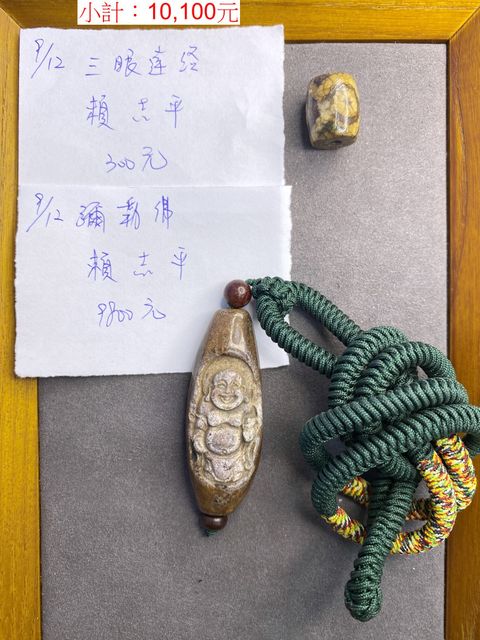 小計：10,100元
9/12 三眼達經
賴志平
300元
9/12 彌勒佛
賴志平
9800元